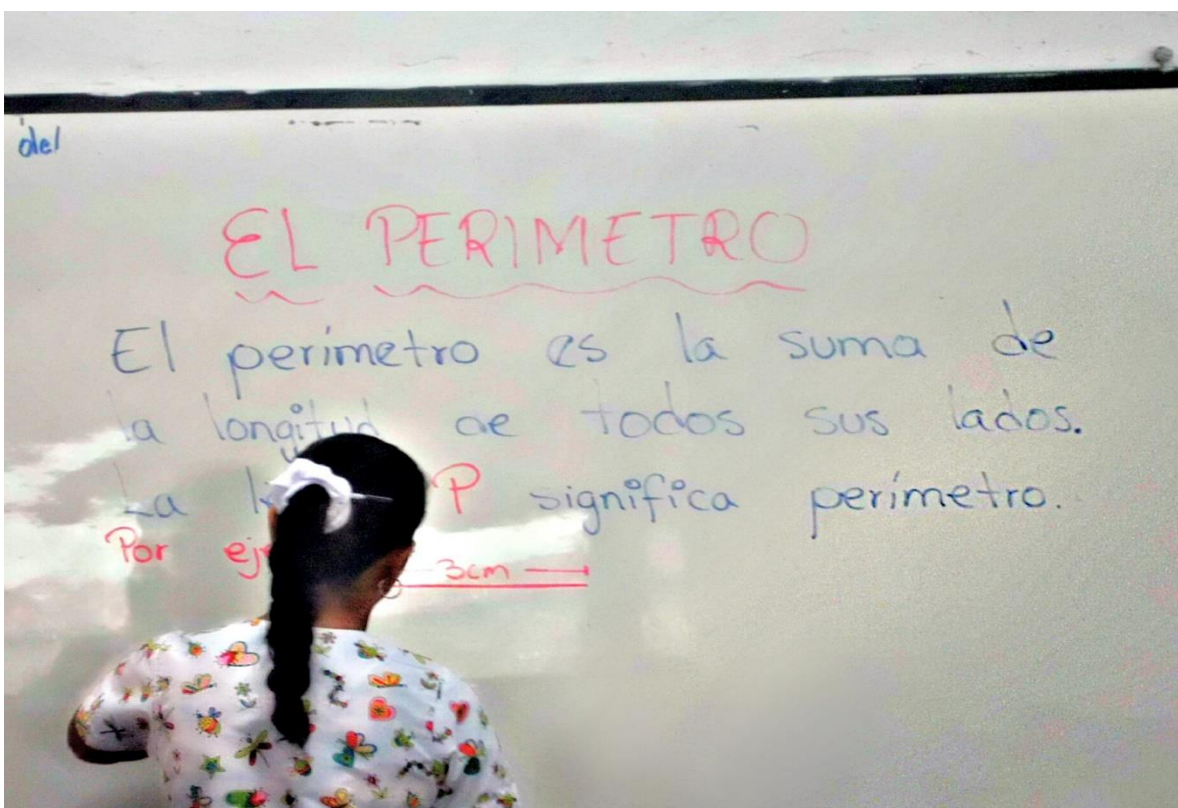 del
EL PERIMETRO
El perímetro es la suma de
la longitud de todos sus lados.
La P significa perímetro.
Por
3cm